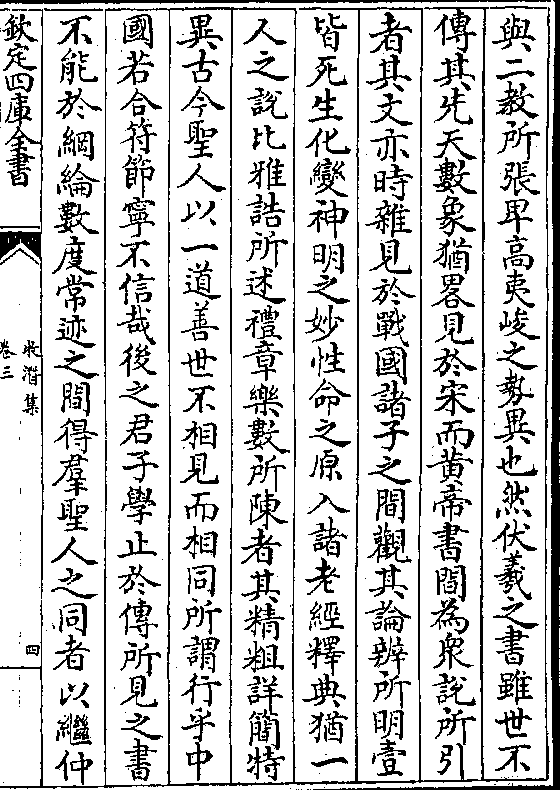 與二教所張卑高夷峻之勢異也然伏羲之書雖世不
傳其先天數象猶畧見於宋而黄帝書閒為衆説所引
者其文亦時雜見於戰國諸子之間觀其論辨所明壹
皆死生化變神明之妙性命之原入諸老經釋典猶一
人之説比雅誥所述禮章樂數所陳者其精粗詳簡特
異古今聖人以一道善世不相見而相同所謂行乎中
國若合符節寧不信哉後之君子學止於傳所見之書
不能於綱綸數度常迹之間得羣聖人之同者以繼仲
欽定四庫全書
牧潛集
卷三
四